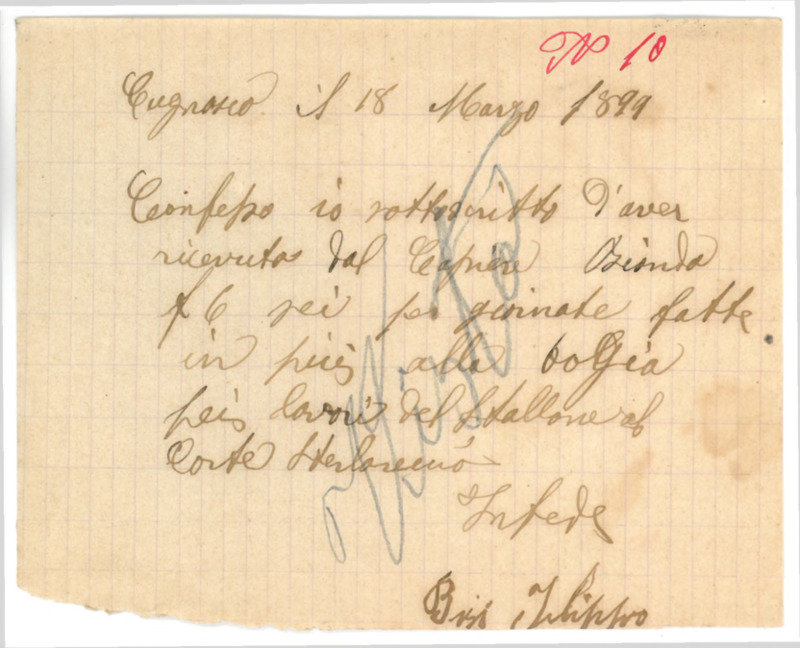 N° 10
Cugnasco il 18 Marzo 1899
Confesso io sottoscritto d'aver
ricevuto dal Capiere Bionda
f 6 sei per giornate fatte
in più alla bolgia
peis lavori del Stallone al
Corte
In fede
Filippo
Visto